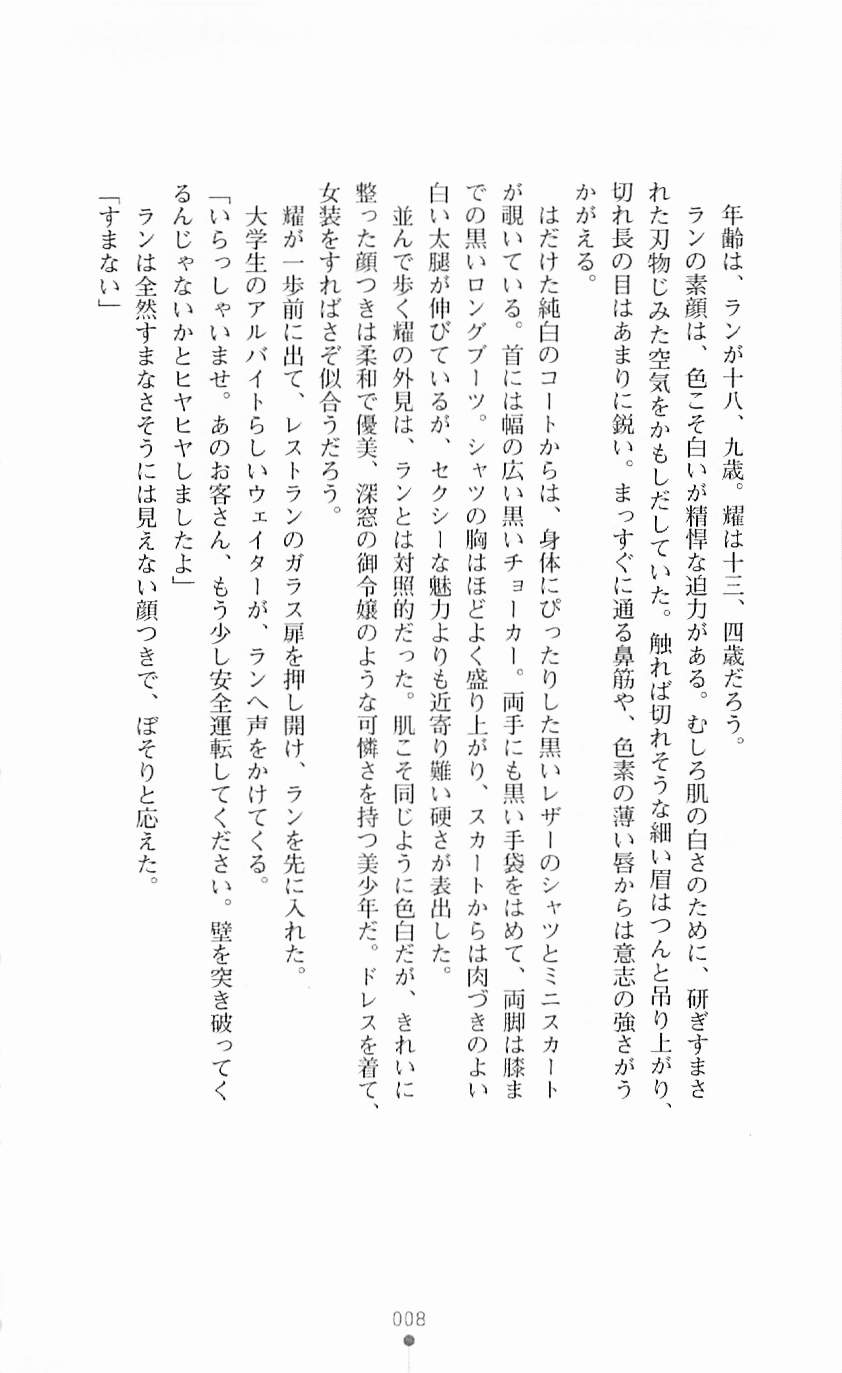 年齢は、ランが十八、九歳。耀は十三、四歳だろう。
　ランの素顔は、色こそ白いが精悍な迫力がある。むしろ肌の白さのために、研ぎすまさ
れた刃物じみた空気をかもしだしていた。触れば切れそうな細い眉はつんと吊り上がり、
切れ長の目はあまりに鋭い。まっすぐに通る鼻筋や、色素の薄い唇からは意志の強さがう
かがえる。
　はだけた純白のコートからは、身体にぴったりした黒いレザーのシャツとミニスカート
が覗いている。首には幅の広い黒いチョーカー。両手にも黒い手袋をはめて、両脚は膝ま
での黒いロングブーツ。シャツの胸はほどよく盛り上がり、スカートからは肉づきのよい
白い太腿が伸びているが、セクシーな魅力よりも近寄り難い硬さが表出した。
　並んで歩く耀の外見は、ランとは対照的だった。肌こそ同じように色白だが、きれいに
整った顔つきは柔和で優美、深窓の御令嬢のような可憐さを持つ美少年だ。ドレスを着て、
女装をすればさぞ似合うだろう。
　耀が一歩前に出て、レストランのガラス扉を押し開け、ランを先に入れた。
　大学生のアルバイトらしいウェイターが、ランへ声をかけてくる。
「いらっしゃいませ。あのお客さん、もう少し安全運転してください。壁を突き破ってく
るんじゃないかとヒヤヒヤしましたよ」
　ランは全然すまなさそうには見えない顔つきで、ぼそりと応えた。
「すまない」
008